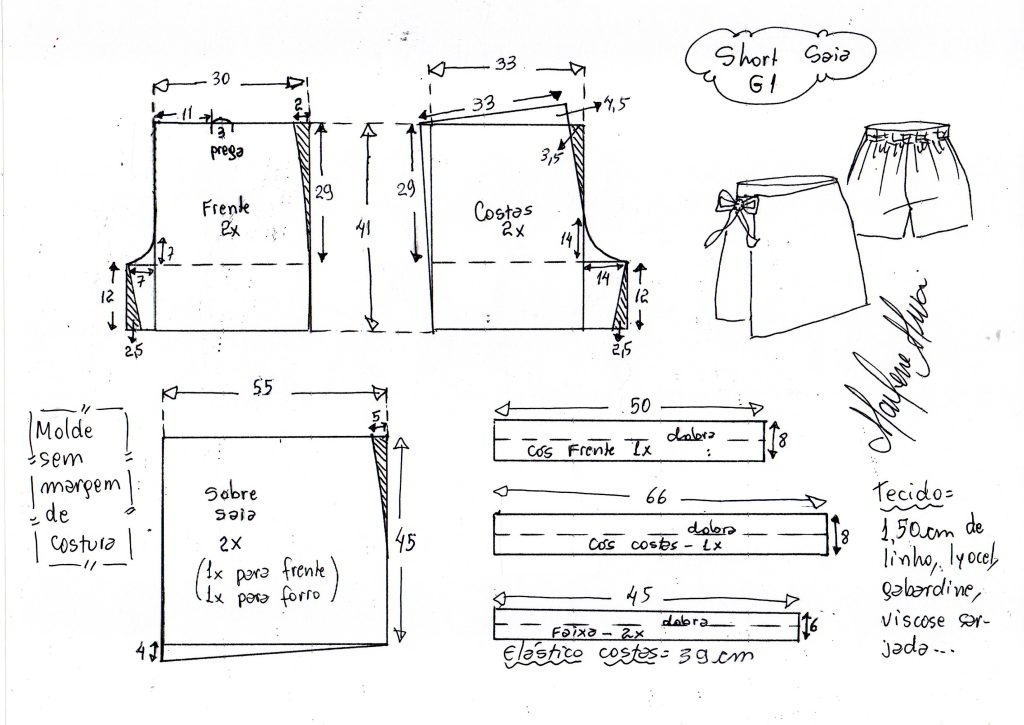 Short Saia
G1
30
11
3
prega
2
Frente
2x
29
7
7
12
2,5
41
33
33
4,5
3,5
29
Costas
2x
14
14
12
2,5
Molde
sem
margem
de
costura
55
5
Sobre
saia
2x
(1x para frente)
(1x para forro)
45
4
50
dobra
Cós Frente 1x
8
66
dobra
Cós costas - 1x
8
45
dobra
Faixa - 2x
6
Elástico costas = 39 cm
Tecido =
1,50cm de
linho, lyocel,
gabardine,
viscose sar-
jada...